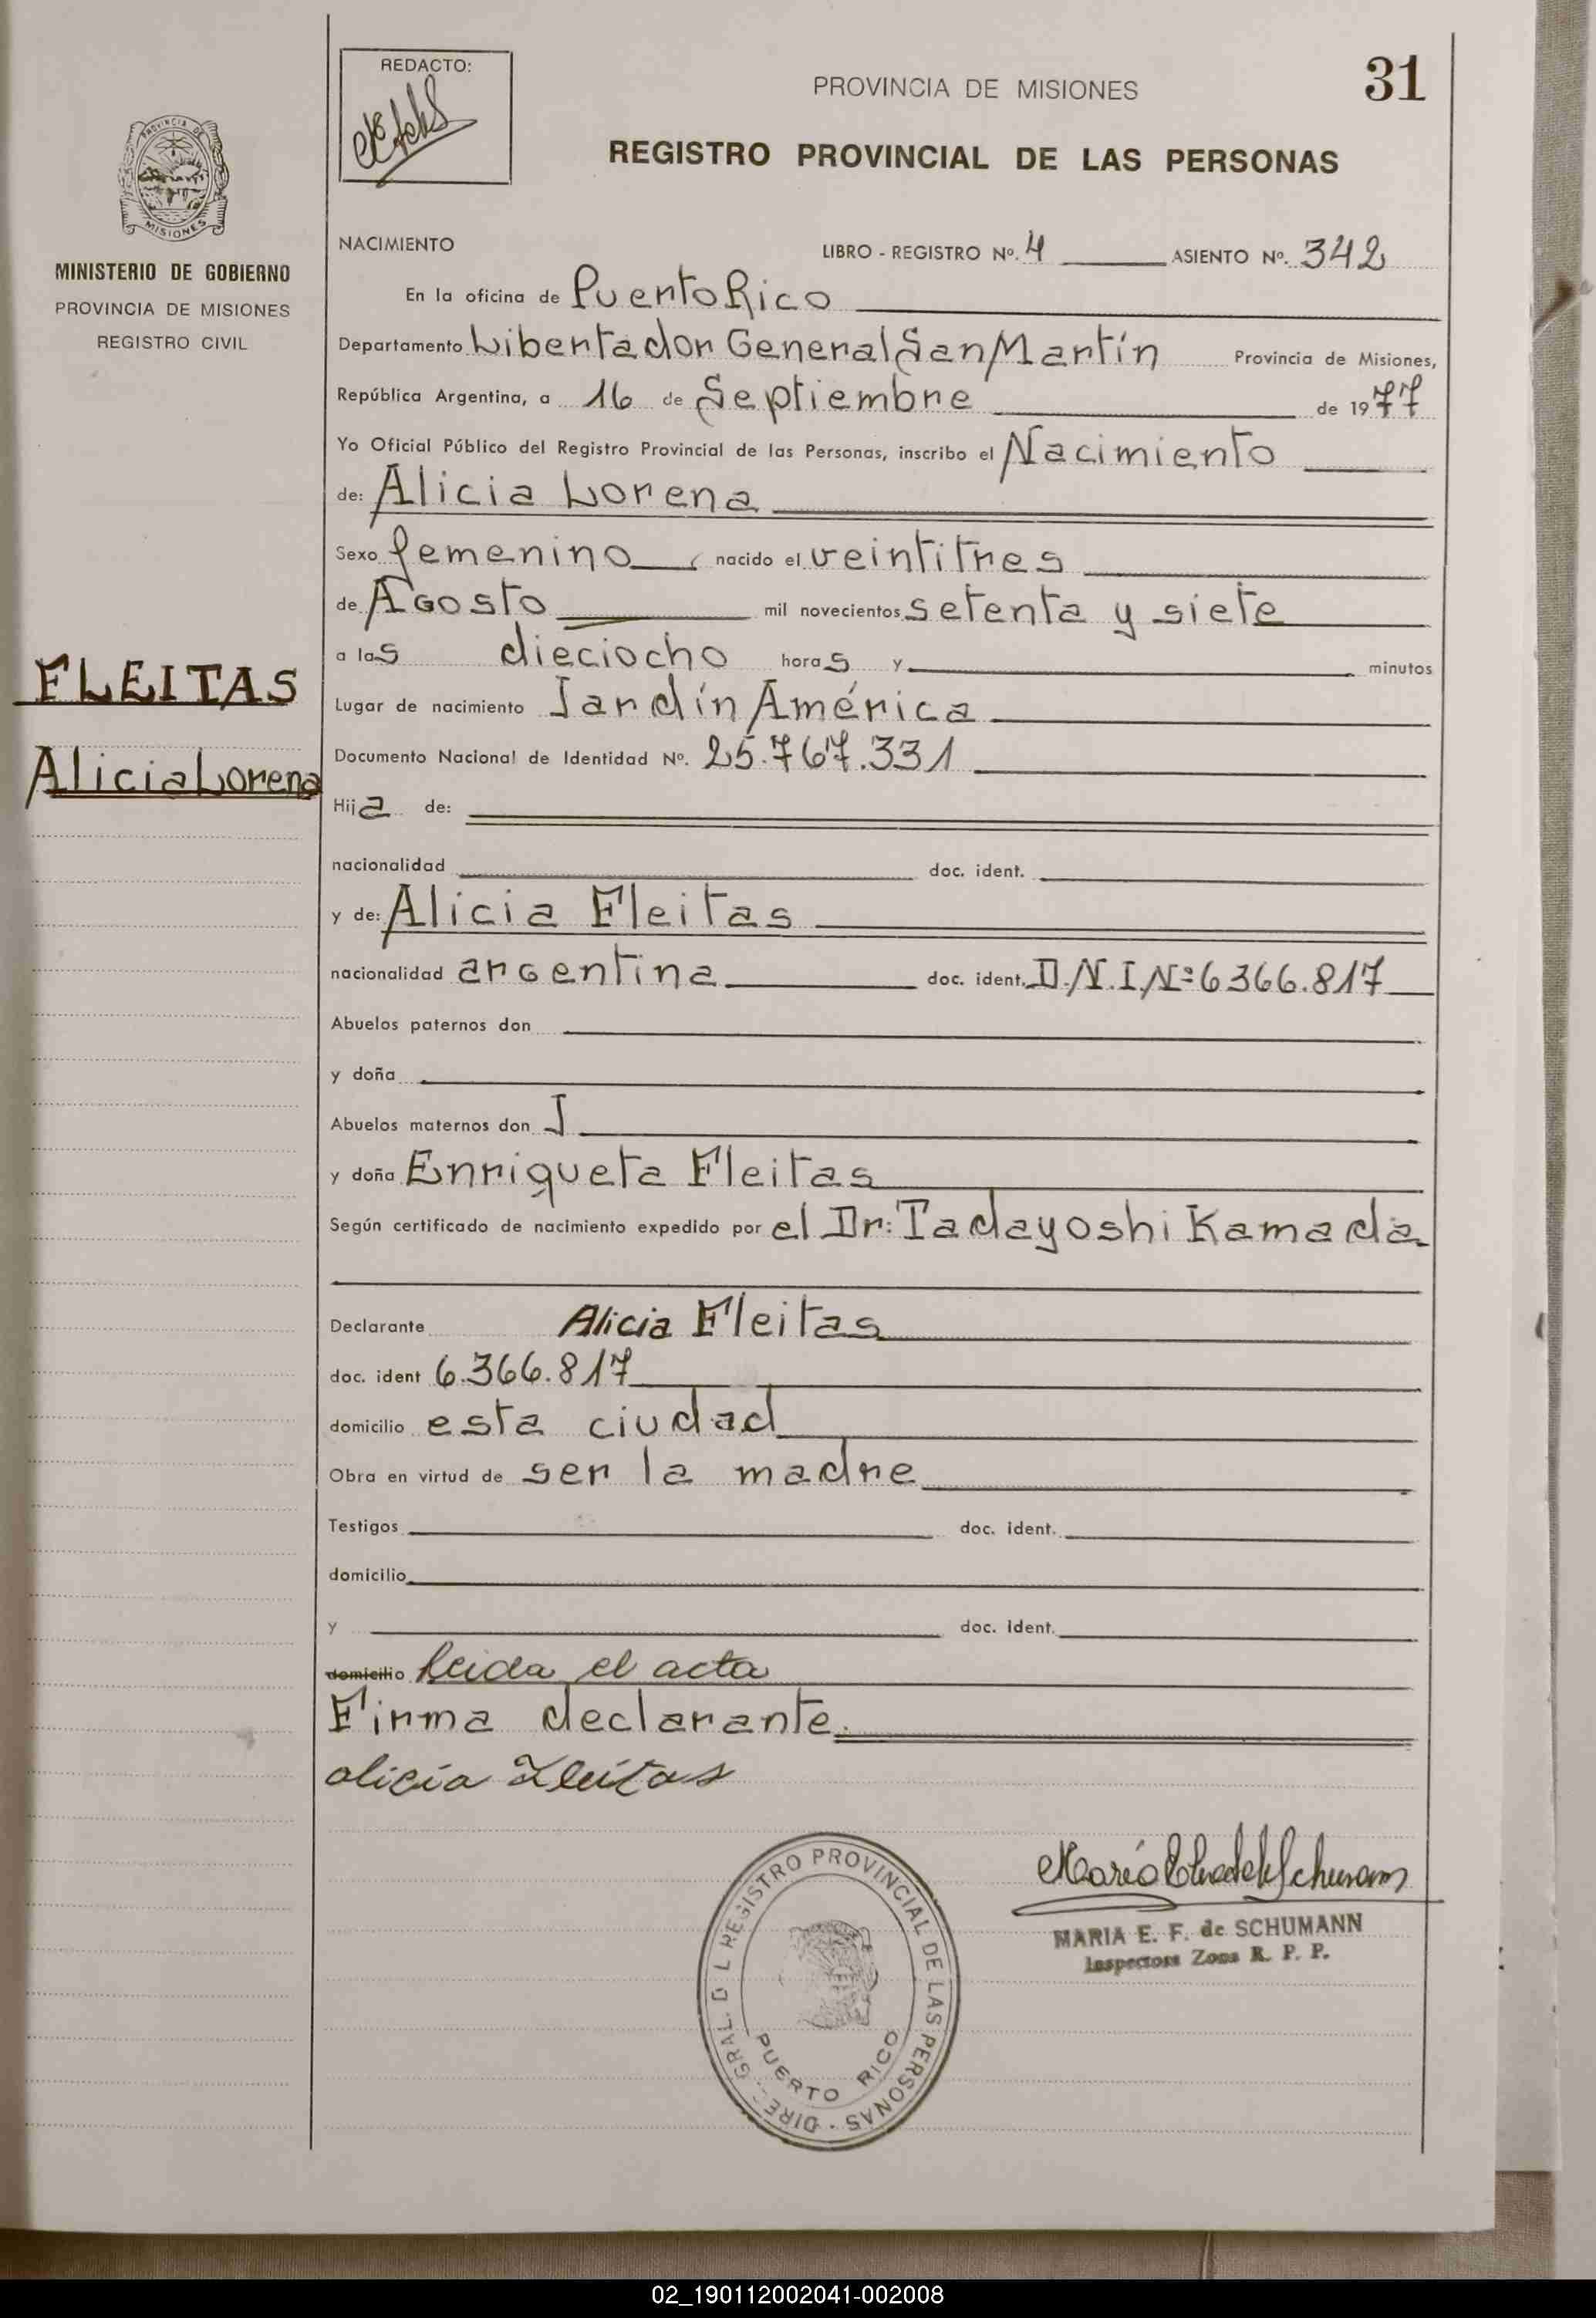 REDACTO:
PROVINCIA DE MISIONES
31
REGISTRO PROVINCIAL DE LAS PERSONAS
PROVINCIA DE
MISIONES
MINISTERIO DE GOBIERNO
PROVINCIA DE MISIONES
REGISTRO CIVIL
NACIMIENTO LIBRO - REGISTRO Nº. 4 ASIENTO Nº. 342
En la oficina de Puerto Rico
Departamento Libertador General San Martín Provincia de Misiones,
República Argentina, a 16 de Septiembre de 1977
Yo Oficial Público del Registro Provincial de las Personas, inscribo el Nacimiento
de: Alicia Lorena
Sexo femenino nacido el veintitres
de Agosto mil novecientos setenta y siete
a las dieciocho horas y minutos
FLEITAS
Alicia Lorena
Lugar de nacimiento Jardín América
Documento Nacional de Identidad Nº. 25.767.331
Hija de:
nacionalidad doc. ident.
y de: Alicia Fleitas
nacionalidad argentina doc. ident. D.N.I.Nº 6366.817
Abuelos paternos don
y doña
Abuelos maternos don
y doña Enriqueta Fleitas
Según certificado de nacimiento expedido por el Dr: Tadayoshi Kamada
Declarante Alicia Fleitas
doc. ident 6.366.817
domicilio esta ciudad
Obra en virtud de ser la madre
Testigos doc. ident.
domicilio
y doc. ident.
domicilio Leida el acta
Firma declarante.
alicia Fleitas
MARIA E. F. de SCHUMANN
Inspectora Zona R. P. P.
DIRE GRAL D L REGISTRO PROVINCIAL DE LAS PERSONAS -
PUERTO RICO
02_190112002041-002008